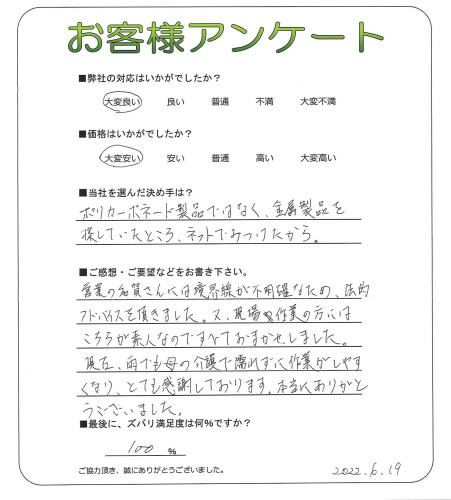 お客様アンケート
■弊社の対応はいかがでしたか?
大変良い 良い 普通 不満 大変不満
■価格はいかがでしたか?
大変安い 安い 普通 高い 大変高い
■当社を選んだ決め手は?
ポリカーボネート製品ではなく、金属製品を
探していたところ、ネットでみつけたから。
■ご感想・ご要望などをお書き下さい。
営業の名賀さんには境界線が不明確なため、法的
アドバイスを頂きました。又、現場作業の方には
こちらが素人なのですべておまかせしました。
現在、雨でも母の介護で濡れずに作業がしやす
くなり、とても感謝しております。本当にありがと
うございました。
■最後に、ズバリ満足度は何%ですか?
100 %
ご協力頂き、誠にありがとうございました。
2022.6.19